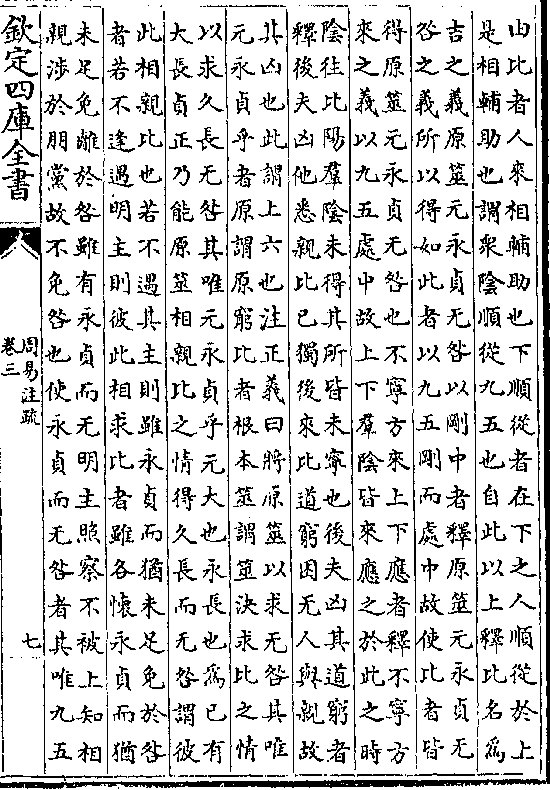 由比者人來相輔助也下順從者在下之人順從於上
是相輔助也謂衆陰順從九五也自此以上釋比名爲
吉之義原筮元永貞无咎以剛中者釋原筮元永貞无
咎之義所以得如此者以九五剛而處中故使比者皆
得原筮元永貞无咎也不寧方來上下應者釋不寧方
來之義以九五處中故上下羣陰皆來應之於此之時
陰往比陽羣陰未得其所皆未寧也後夫凶其道窮者
釋後夫凶他悉親比已獨後來比道窮困无人與親故
其凶也此謂上六也注正義曰將原筮以求无咎其唯
元永貞乎者原謂原窮比者根本筮謂筮決求比之情
以求久長无咎其唯元永貞乎元大也永長也爲已有
大長貞正乃能原筮相親比之情得久長而无咎謂彼
此相親比也若不遇其主則雖永貞而猶未足免於咎
者若不逢遇明主則彼此相求比者雖各懷永貞而猶
未足免離於咎雖有永貞而无明主照察不被上知相
親涉於朋黨故不免咎也使永貞而无咎者其唯九五
欽定四庫全書
周易注疏
卷三
七